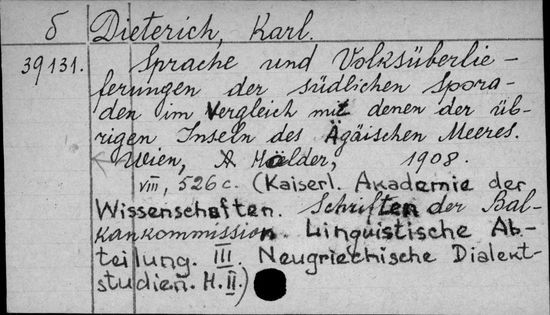 б Dieterich, Karl.
39131. Sprache und Volksüberlie-
ferungen der südlichen Spora-
den im Vergleich mit denen der üb-
rigen Inseln des Ägäischen Meeres.
Wien, A Hölder, 1908.
VIII, 526 c. (Kaiserl. Akademie der
Wissenschaften. Schriften der Bal-
kankommission. Linguistische Ab-
teilung. III. Neugriechische Dialekt-
studien. H. II.)